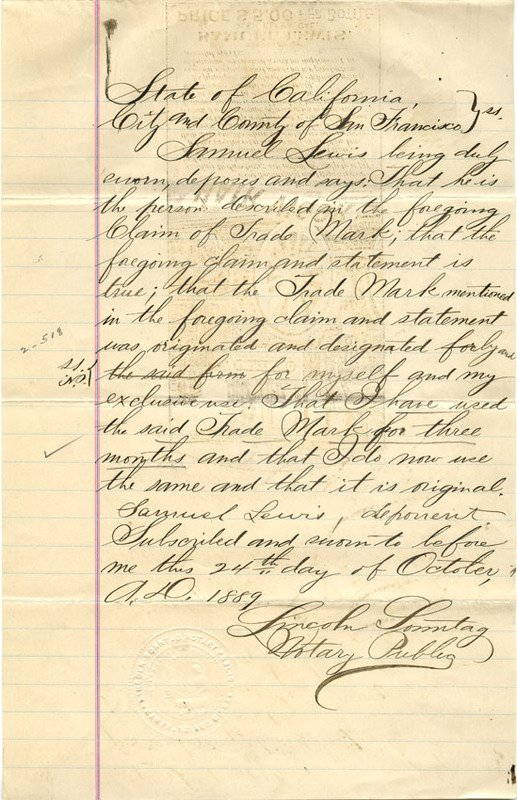 State of California,
City and County of San Francisco } ss.
Samuel Lewis being duly
sworn, deposes and says: That he is
the person described in the foregoing
Claim of Trade Mark; that the
foregoing claim and statement is
true; that the Trade Mark mentioned
in the foregoing claim and statement
2-518
was originated and designated for by and
the said firm for myself and my
exclusive use. That I have used
the said Trade Mark for three
months and that I do now use
the same and that it is original.
Samuel Lewis, deponent
Subscribed and sworn to before
me this 24th day of October
A.D. 1889
Lincoln Sonntag
Notary Public